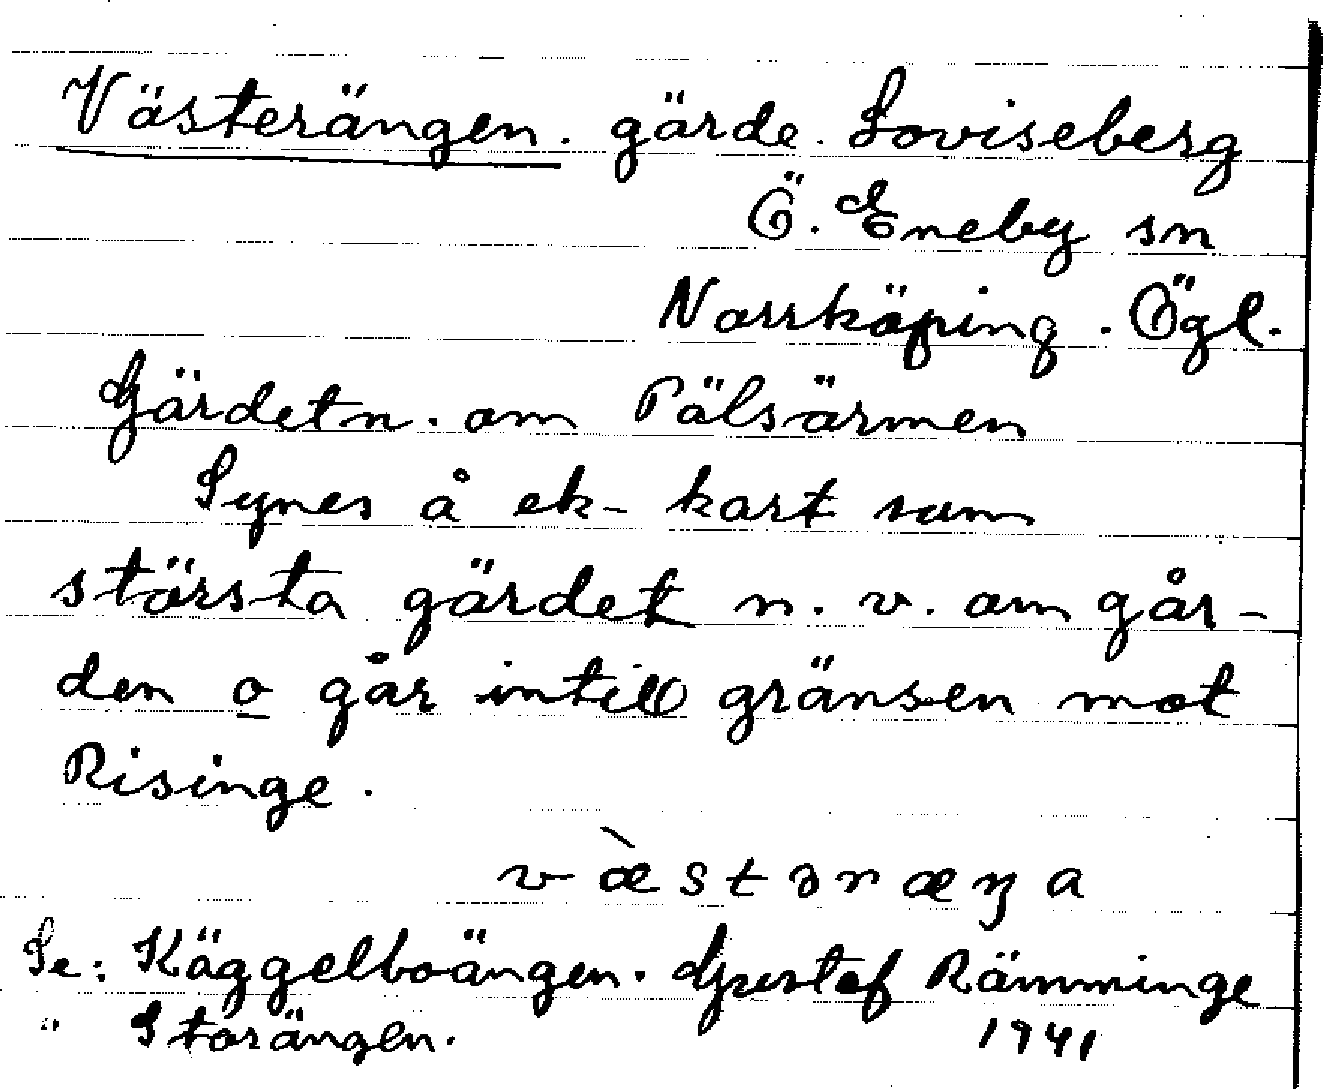 Västerängen. gärde. Loviseberg
Ö. Eneby sn
Norrköping. Ögl.
Gärdet n. om Pälsärmen
Synes å ek-kart som
största gärdet n. v. om går-
den o går intill gränsen mot
Risinge.
væ̀stəræŋa
Se: Käggelboängen. Gustaf Rämminge
" Storängen. 1941